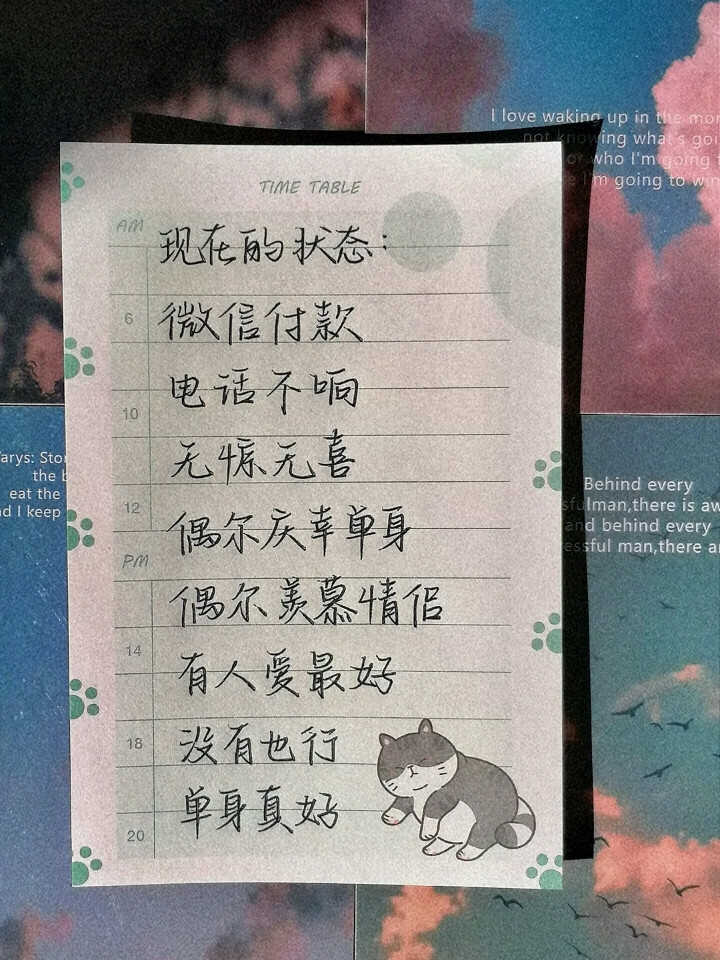 I love waking up in the
not knowing what's
or who I'm going
I'm going to win
TIME TABLE
AM
现在的状态:
6
微信付款
电话不响
10
无惊无喜
12
偶尔庆幸单身
PM
偶尔羡慕情侣
14
有人爱最好
18
没有也行
单身真好
20
arys:
the
eat the
I keep
Behind every
man,there is
and behind every
man,there